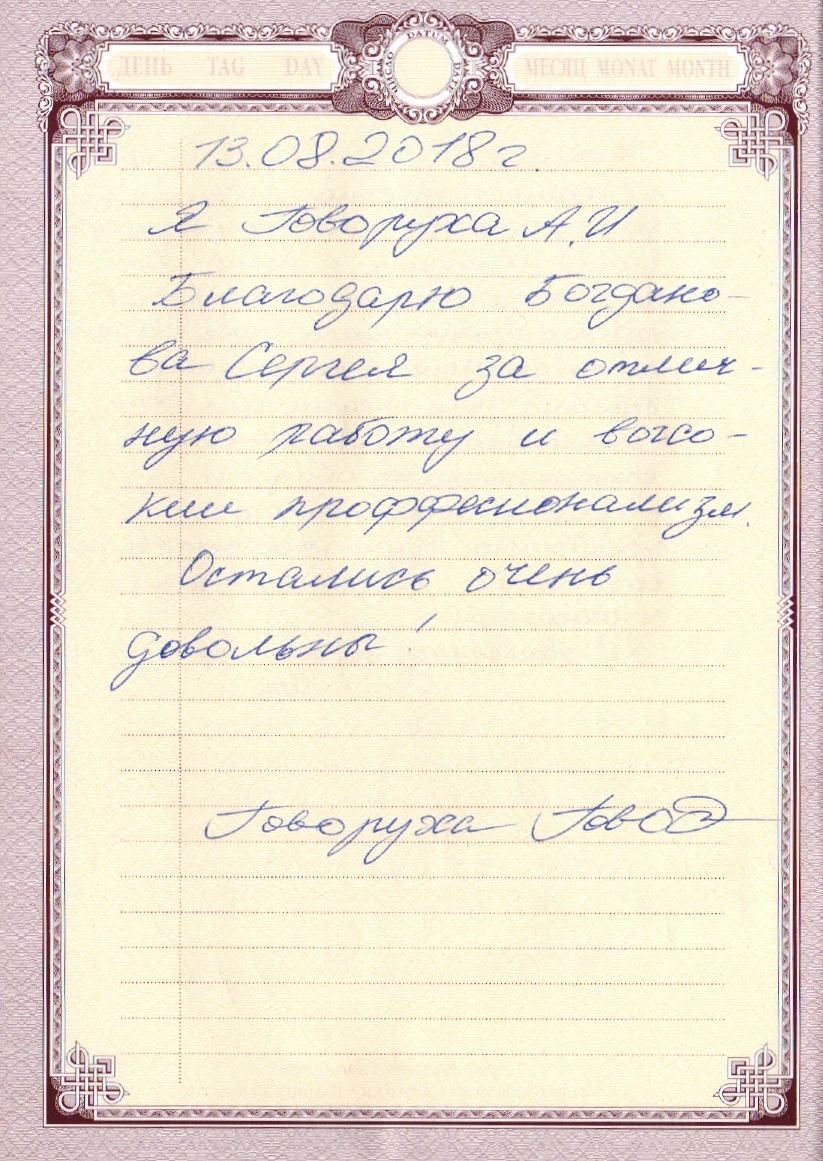 ДЕНЬ TAG DAY
DATUM DATE
МЕСЯЦ MONAT MONTH
13.08.2018г.
Я Говоруха А.И
Благодарю Богдано-
ва Сергея за отлич-
ную работу и высо-
кии проффесионализм.
Остались очень
довольны!
Говоруха